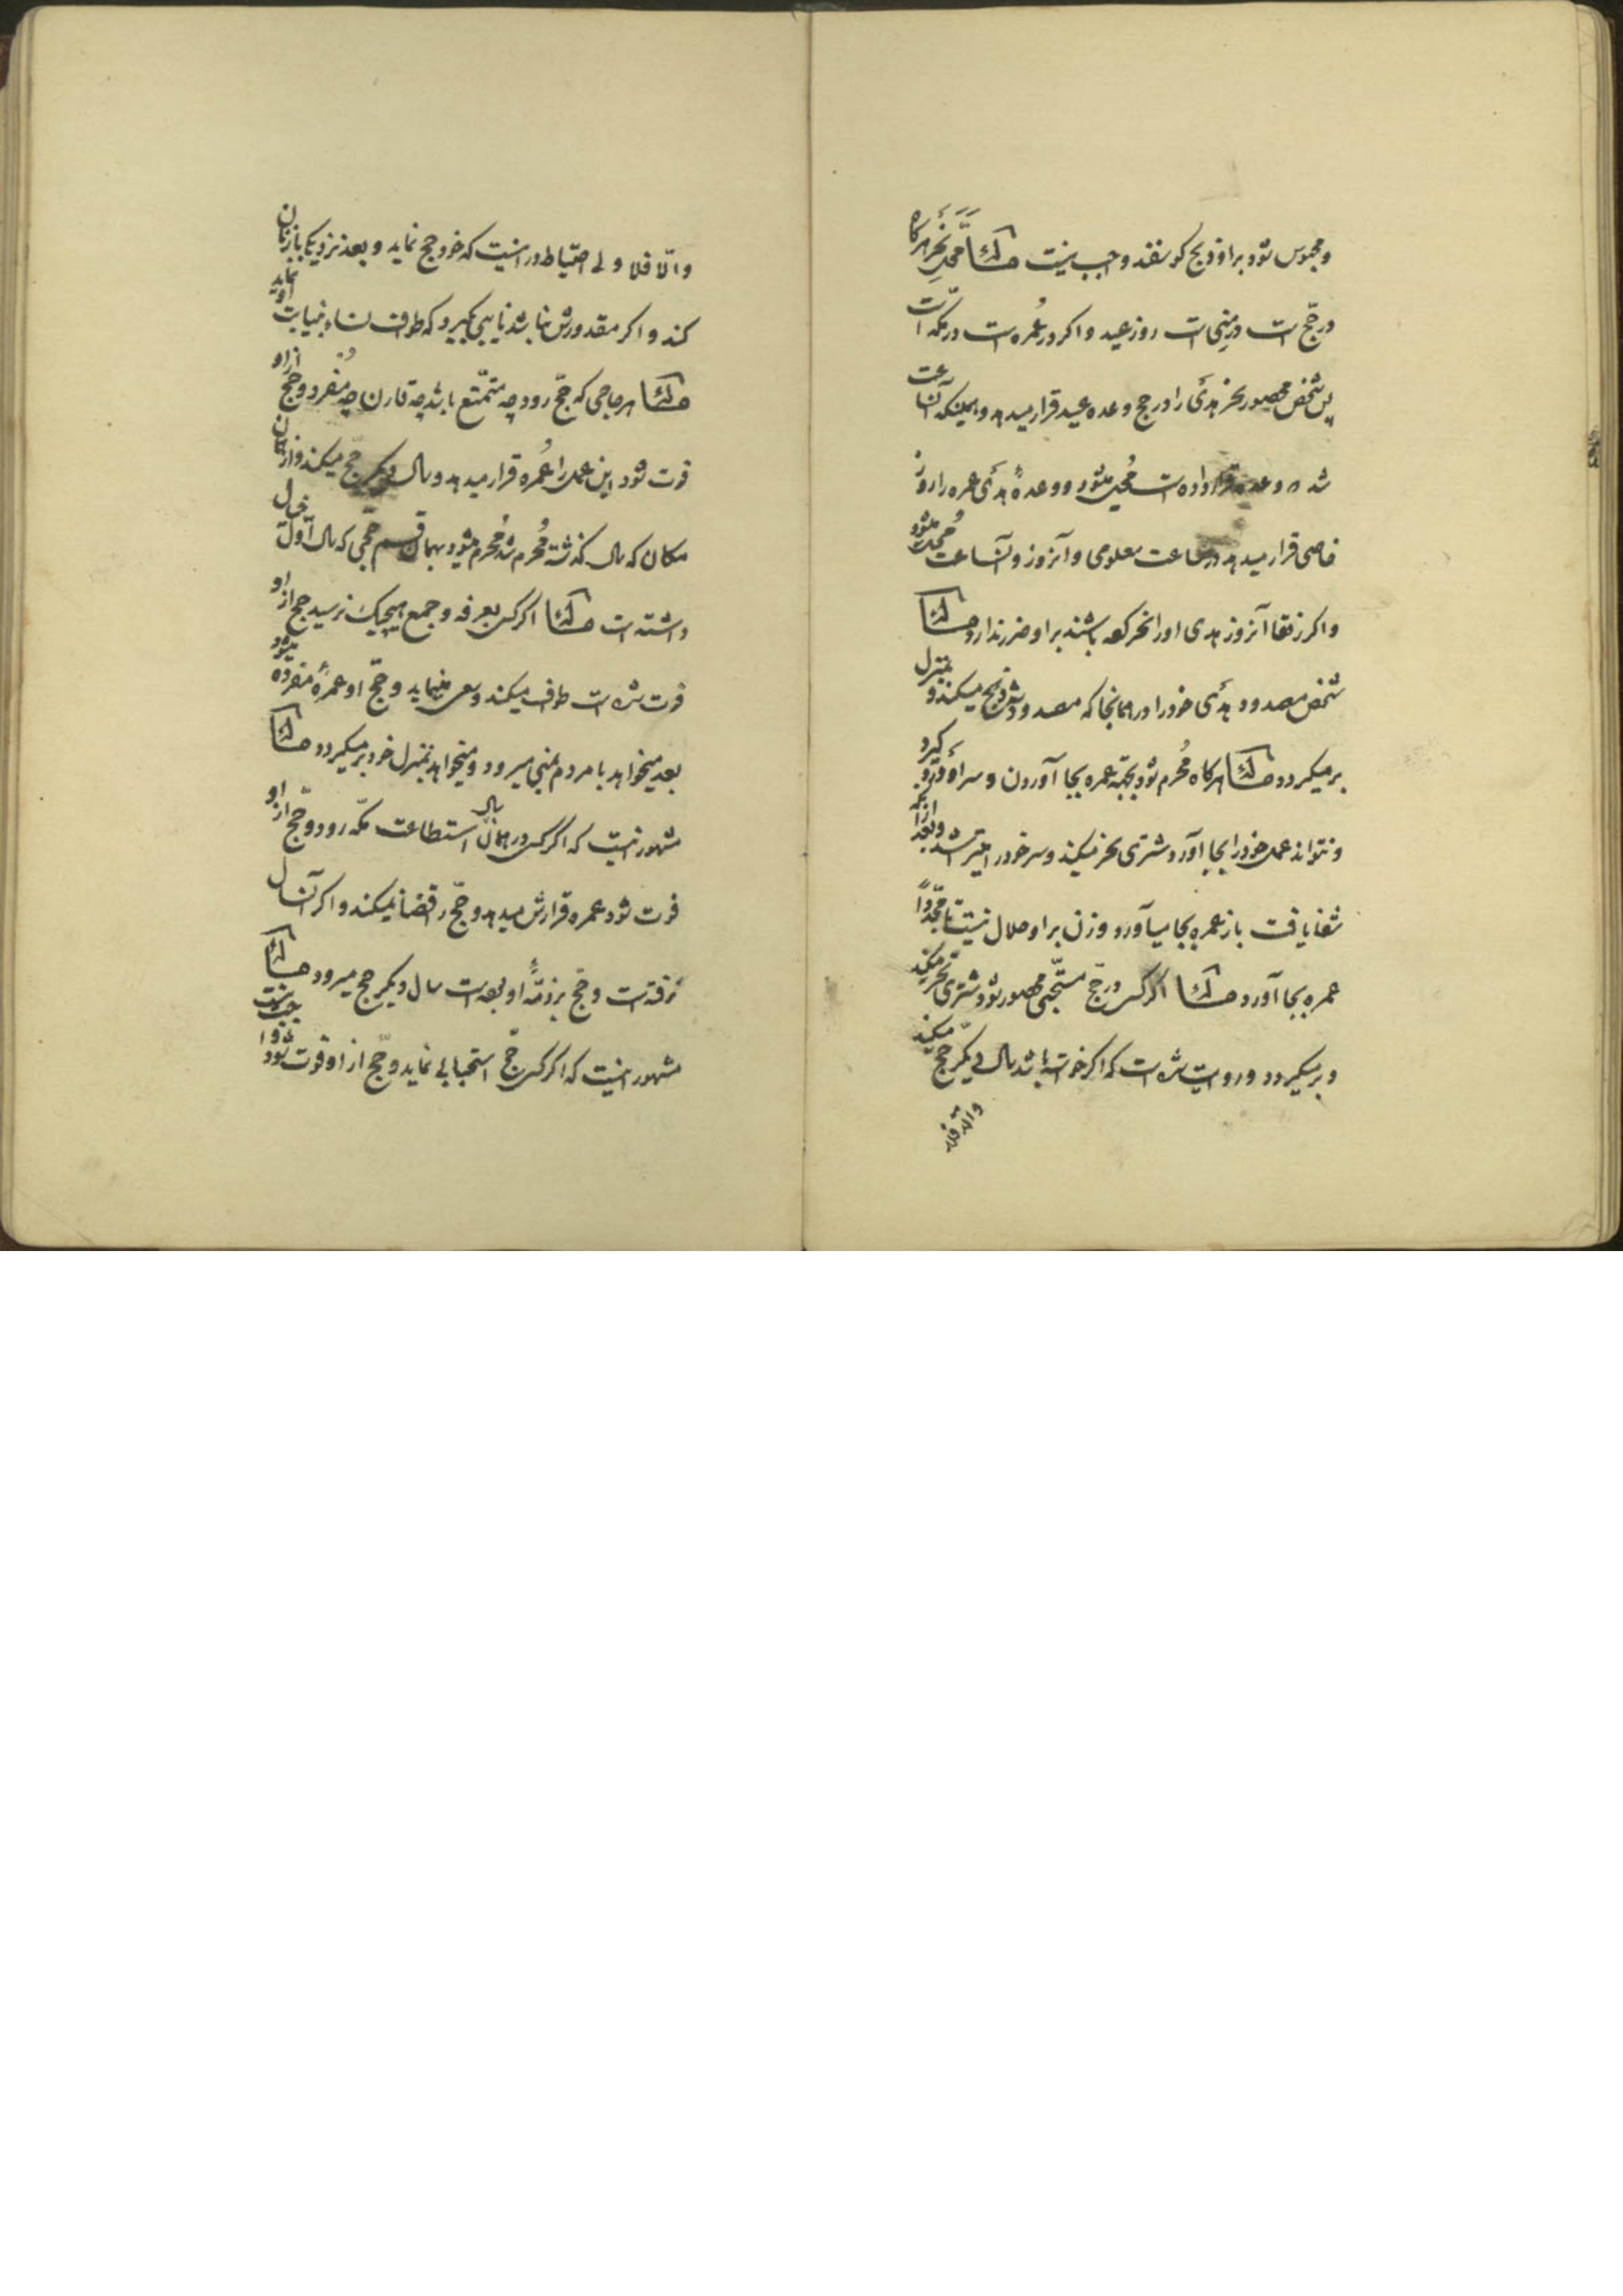 ومحبوس شود بر او ذبح گوسفند واجب نیست مسئله محل نحر هرگاه
در حج است در منی است روز عید و اگر در عمره است در مکه است
پس شخص محصور نحر هدی را در حج وعده عید قرار میدهد و همینکه آنساعت
شد که وعده قرار داده است محل میشود و وعدهٔ هدی عمره را روز
خاصی قرار میدهد در ساعت معلومی و آنروز و آنساعت محل میشود
و اگر رفقا آنروز هدی او را نحر نکرده باشند بر او ضرر ندارد مسئله
شخص مصدود هدی خود را در همانجا که مصدود شد ذبح میکند و بمنزل
بر میگردد مسئله هرگاه محرم شود بجهة عمره بجا آوردن و سر او درد گیرد
و نتواند عمل خود را بجا آورد شتری نحر میکند و سر خود را میتراشد و بعد از آنکه
شفا یافت باز عمره بجا میآورد و زن بر او حلال نیست تا مجدداً
عمره بجا آورد مسئله اگر کسی در حج مستحبی محصور شود شتری نحر میکند
و بر میگردد و روایت شده است که اگر خواسته باشد سال دیگر حج میکند
والا فلا
والّا فلا ولی احتیاط در اینست که خود حج نماید و بعد نزدیکی با زنان نماید
کند و اگر مقدورش نباشد نایبی بگیرد که طواف نساء بنیابت او
مسئله هر حاجی که حج رود چه متمتّع باشد چه قارن چه مُفرد و حج از او
فوت شود این عمل را عُمره قرار میدهد و سال دیگر حج میکند و از همان
مکان که سال گذشته مُحرم شد مُحرم میشود بهمان قسم حجی که سال اول خیال
داشته است مسئله اگر کسی بعرفه و جمع هیچیک نرسید حج از او
فوت شده است طواف میکند و سعی مینماید و حج او عمرهٔ مفرده میشود
بعد میخواهد با مردم بمنی میرود و میخواهد بمنزل خود بر میگردد مسئله
مشهور اینست که اگر کسی در همان سال استطاعت مکّه رود و حج از او
فوت شود عمره قرارش میدهد و حج را قضا نمیکند و اگر آنسال
نرفته است و حج بر ذمّهٔ او بوده است سال دیگر حج میرود مسئله
مشهور اینست که اگر کسی حج استحبابی نماید و حج از او فوت شود واجب نیست